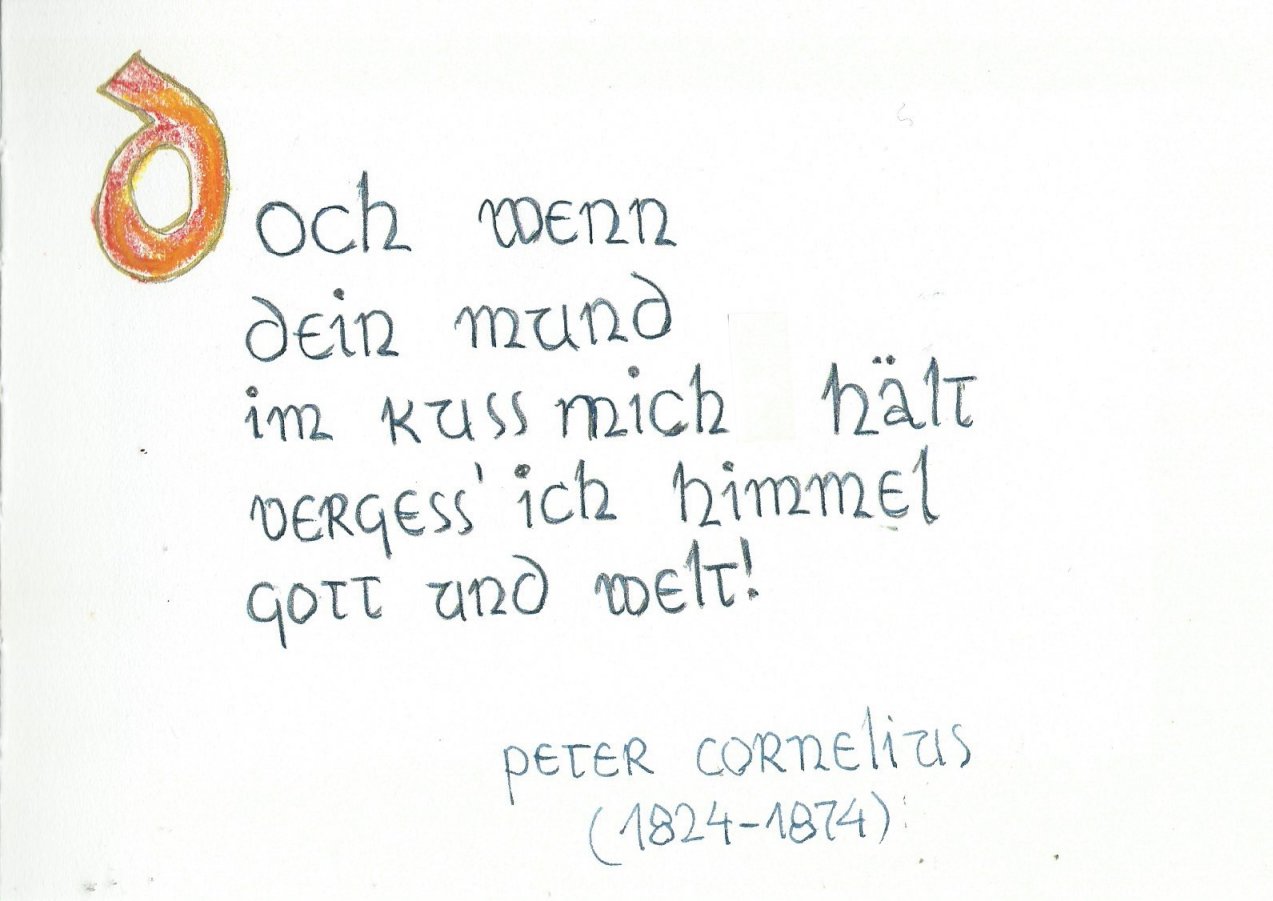 doch wenn
dein mund
im kuss mich hält
vergess' ich himmel
gott und welt!
peter cornelius
(1824-1874)